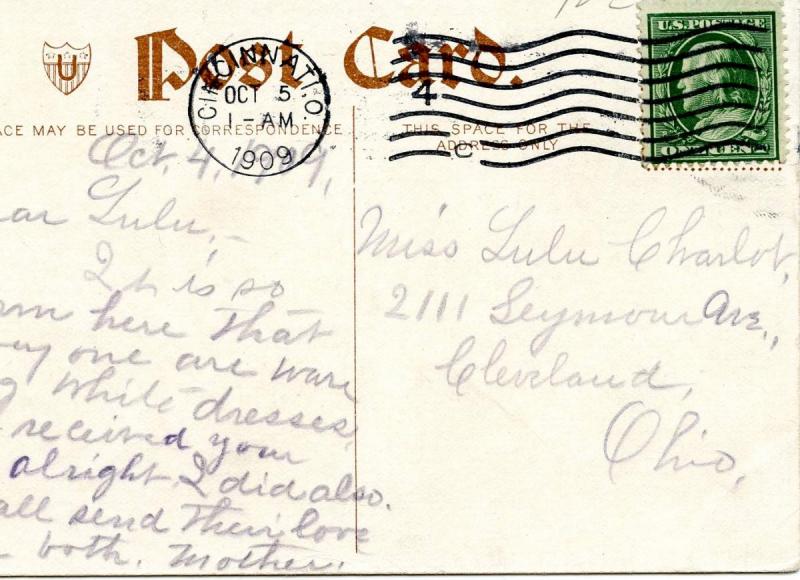 U
Post Card.
CINCINNATI, O.
OCT 5
1-AM
1909
4
C
U.S. POSTAGE
ONE CENT
ACE MAY BE USED FOR CORRESPONDENCE
THIS SPACE FOR THE
ADDRESS ONLY
Oct. 4, 1909,
ear Lulu,-
It is so
rm here that
ey one are ware
g white dresses.
received your
alright I did also.
all send their love
both. Mother.
Miss Lulu Charlot,
2111 Seymour Ave.,
Cleveland,
Ohio,